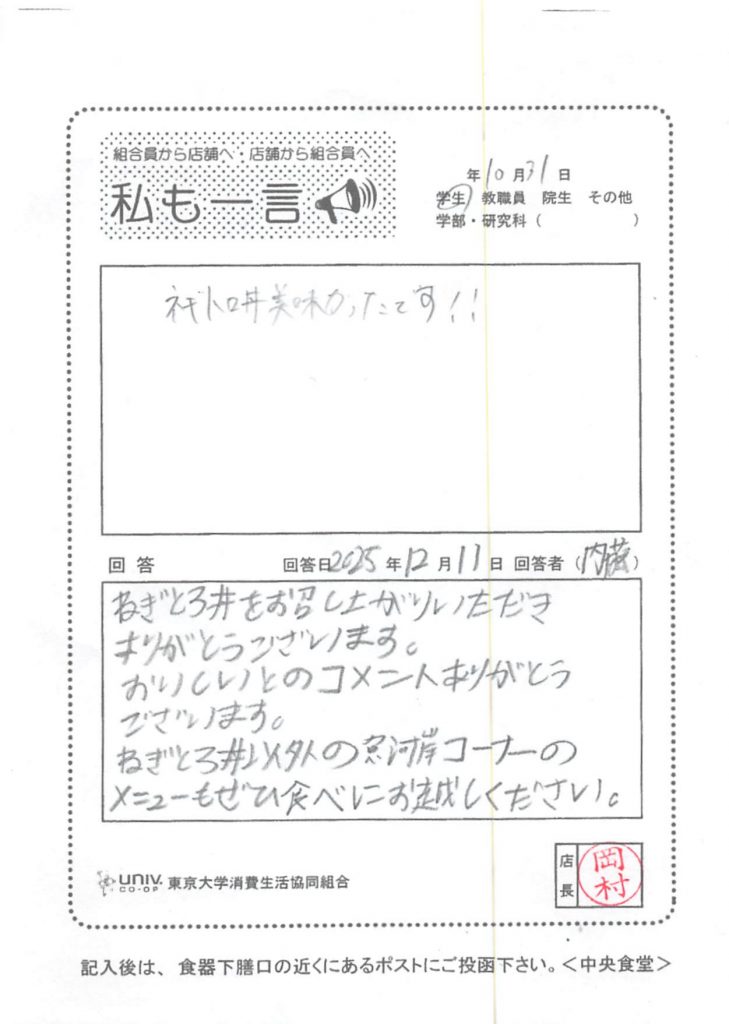 組合員から店舗へ・店舗から組合員へ
私も一言
年10月31日
学生 教職員 院生 その他
学部・研究科（ ）
ネギトロ丼美味かったです!!
回答 回答日2025年12月11日 回答者（内藤）
ねぎとろ丼をお召し上がりいただき
ありがとうございます。
おいしいとのコメントありがとう
ございます。
ねぎとろ丼以外の魚河岸コーナーの
メニューもぜひ食べにお越しください。
UNIV. CO-OP 東京大学消費生活協同組合
店長 岡村
記入後は、食器下膳口の近くにあるポストにご投函下さい。＜中央食堂＞